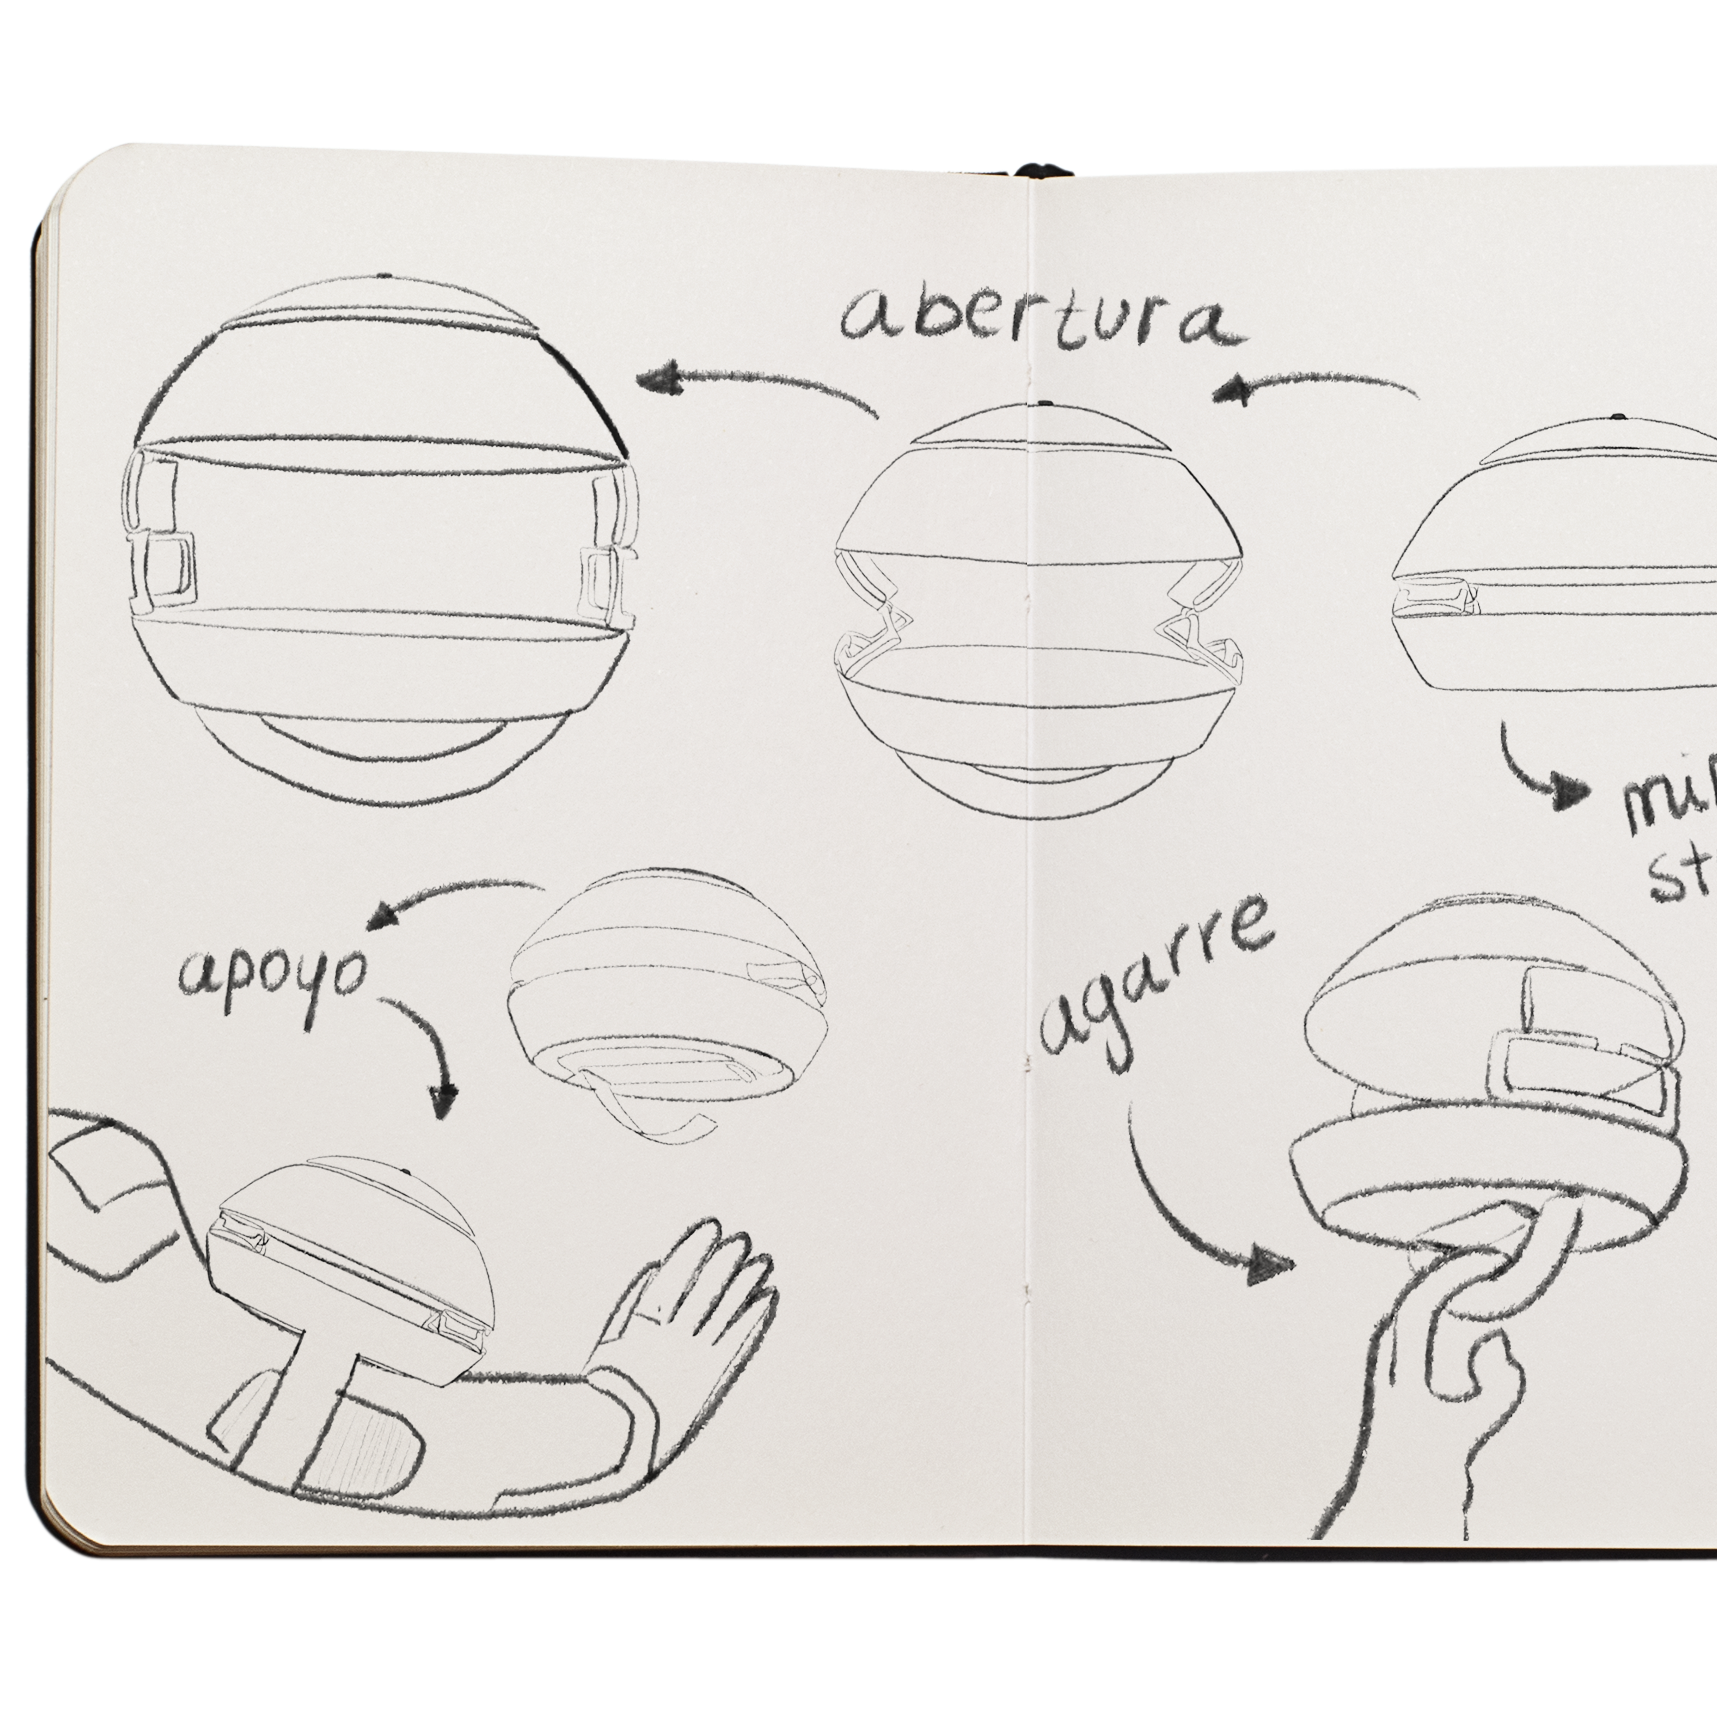 abertura
apoyo
agarre